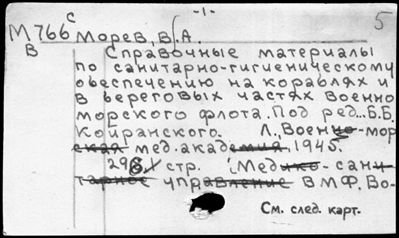 -1-
5
М766 С Морев, В.А.
В Справочные материалы
по санитарно-гигиеническому
обеспечению на кораблях и
в береговых частях Военно
морского флота. Под ред... Б.Б.
Койранского. Л., Военно-мор
ская мед. академия, 1945.
298 стр. (Медико-сани-
тарное управление ВМФ. Во-
См. след. карт.